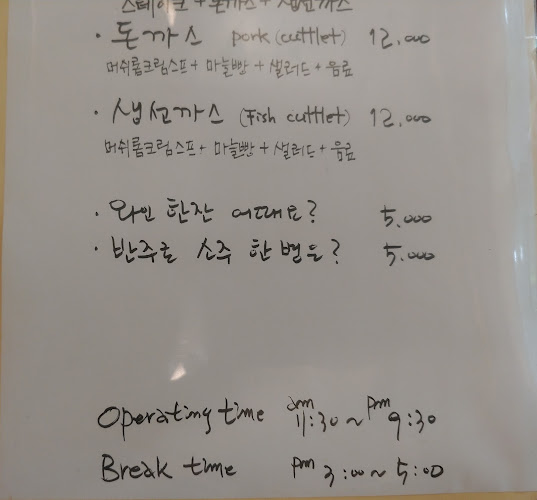 스테이크 + 돈까스 + 생선까스
· 돈까스 pork (cuttlet) 12,000
머쉬룸크림스프 + 마늘빵 + 샐러드 + 음료
· 생선까스 (Fish cuttlet) 12,000
머쉬룸크림스프 + 마늘빵 + 샐러드 + 음료
· 와인 한잔 어때요? 5,000
· 반주로 소주 한 병은? 5,000
Operating time am 11:30 ~ pm 9:30
Break time pm 3:00 ~ 5:00